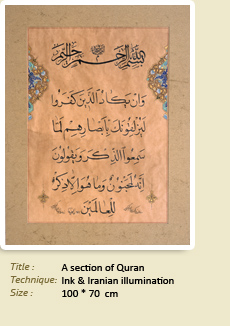 بسم الله الرحمن الرحيم
وَإِنْ يَكَادُ الَّذِينَ كَفَرُوا
لَيُزْلِقُونَكَ بِأَبْصَارِهِمْ لَمَّا
سَمِعُوا الذِّكْرَ وَيَقُولُونَ
إِنَّهُ لَمَجْنُونٌ وَمَا هُوَ إِلَّا ذِكْرٌ
لِلْعَالَمِينَ
Title : A section of Quran
Technique: Ink & Iranian illumination
Size : 100 * 70 cm